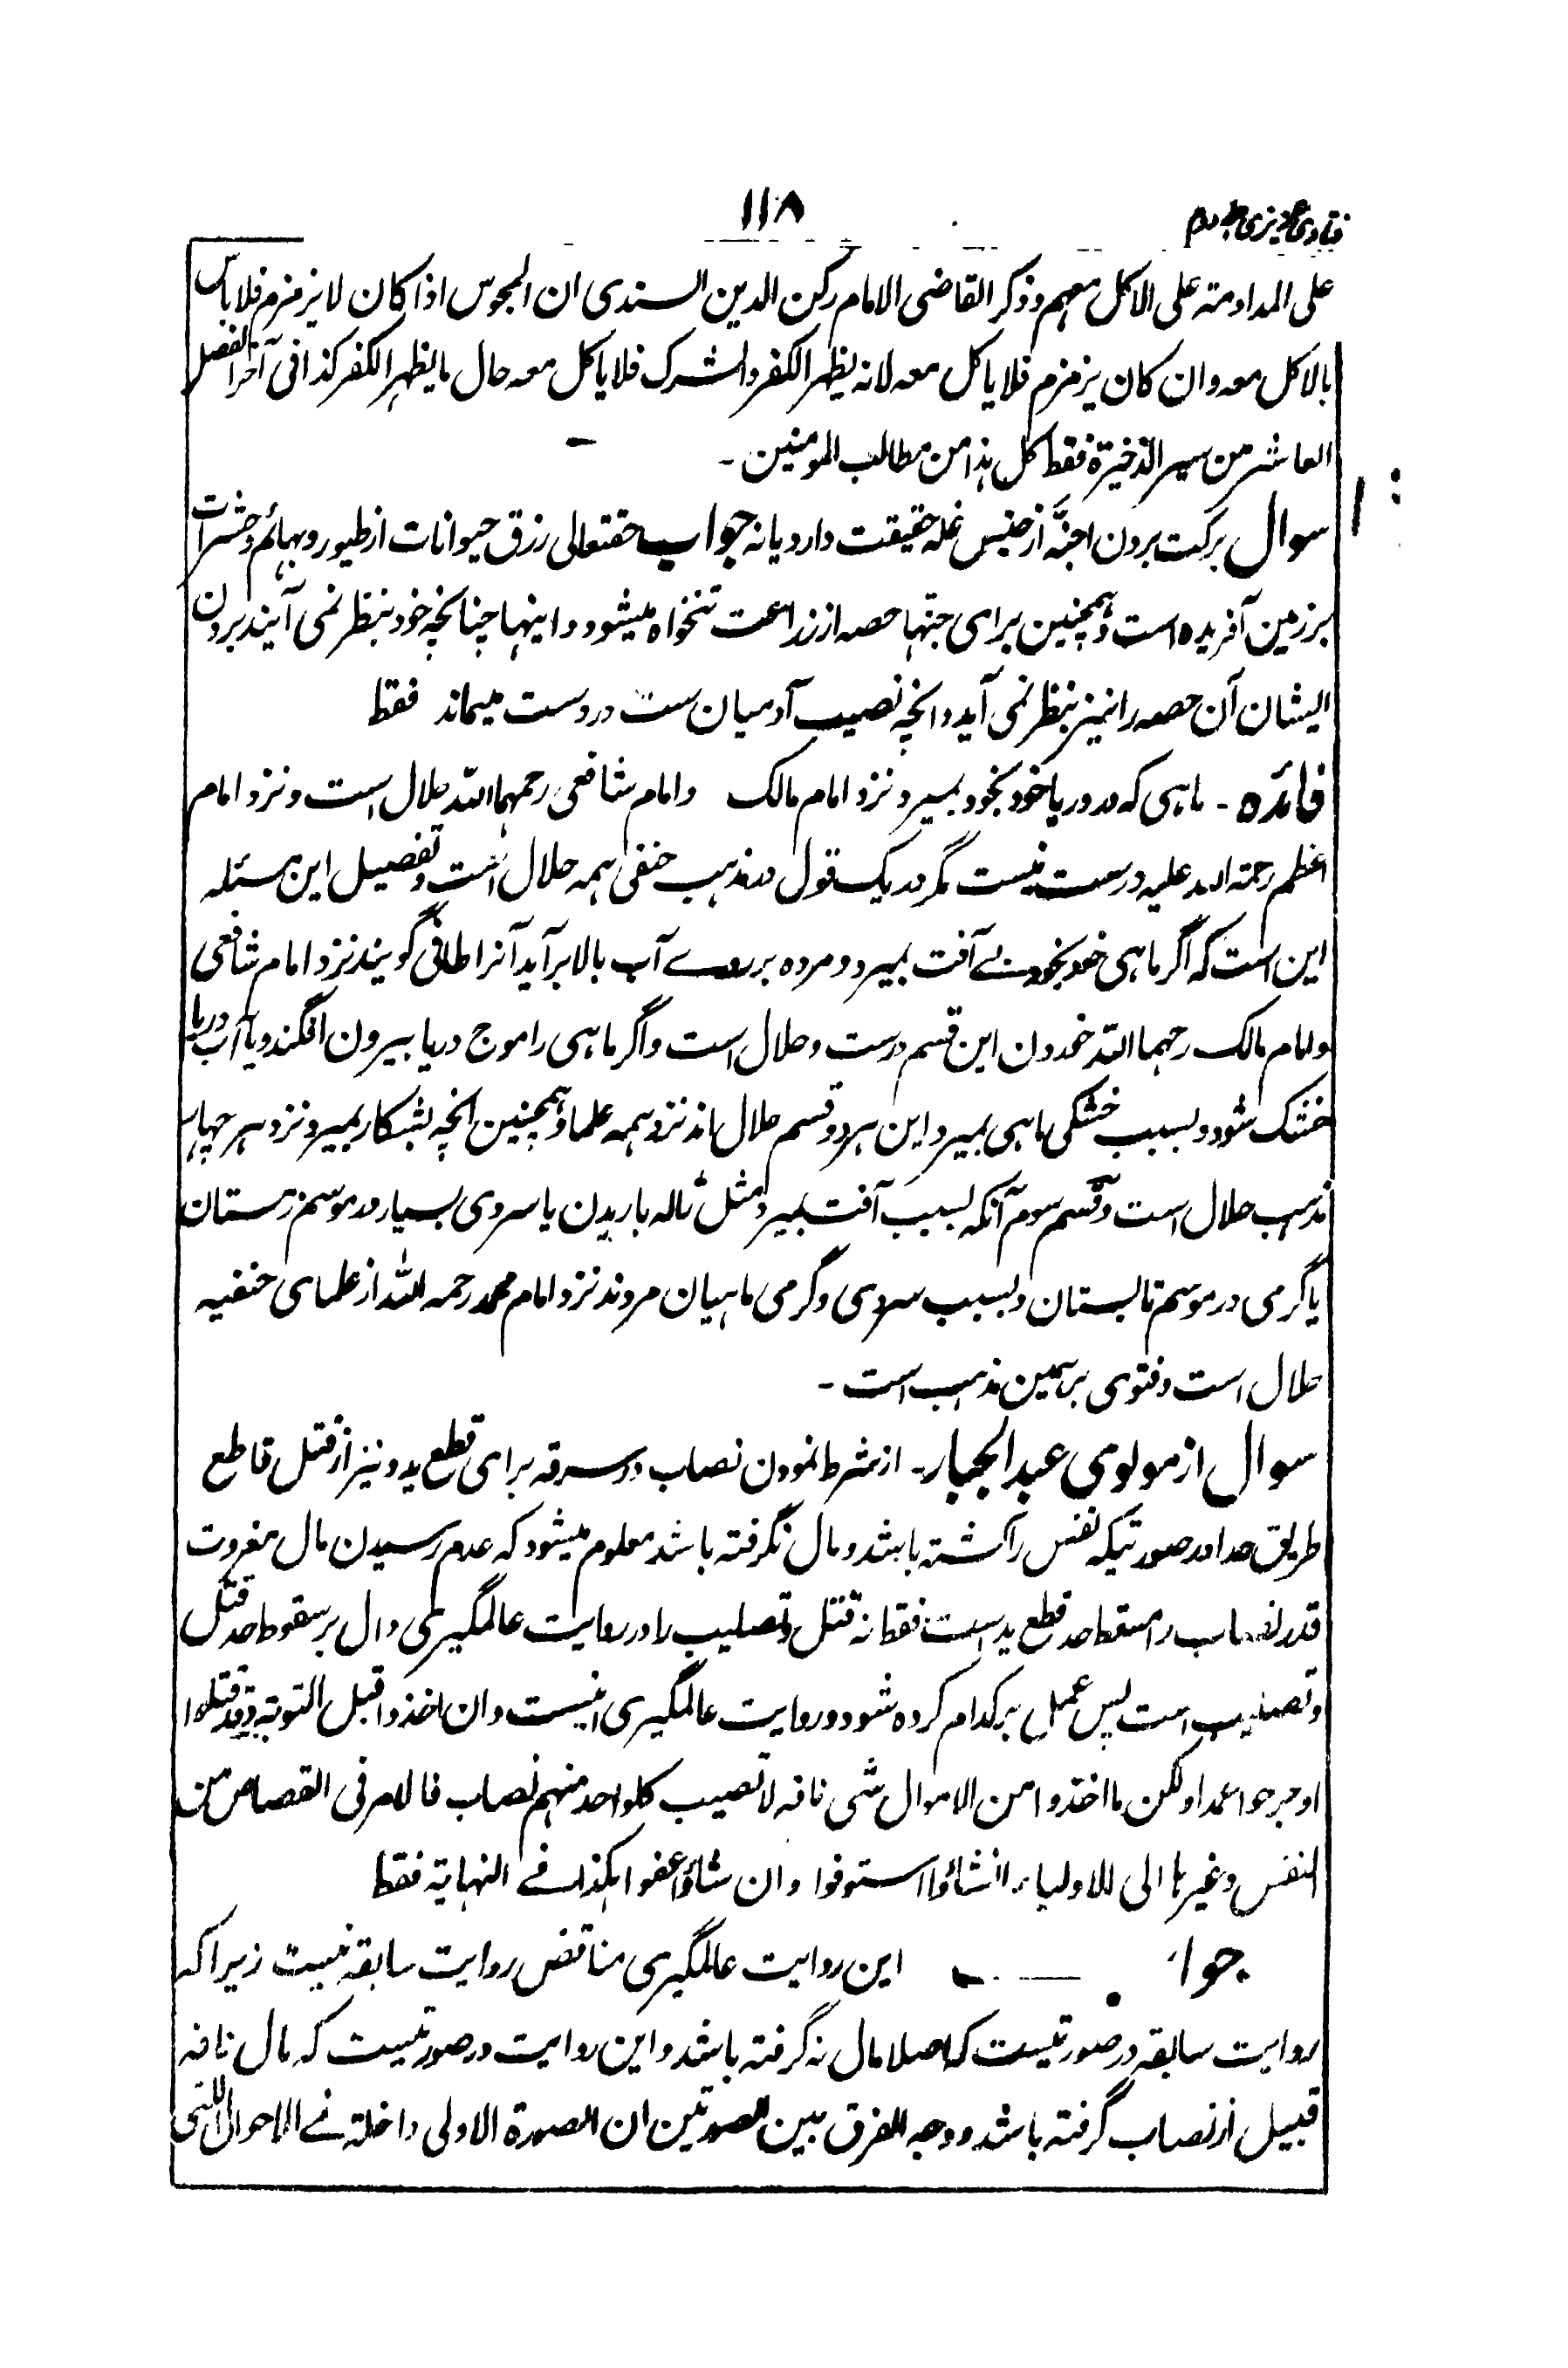 فتاوی عزیزی جلد دوم
۱۱۸
علی المداومة علی الاکل معهم وذکر القاضی الامام رکن الدین السندی ان المجوس اذا کان لا یزمزم فلا باس
بالاکل معه وان کان یزمزم فلا یاکل معه لانه یظهر الکفر والشرک فلا یاکل معه حال ما یظهر الکفر کذا فی آخر الفصل
العاشر من سیر الذخیرة فقط کل هذا من مطالب المومنین ـ
سوال برکت بردن اجنّه از جنس غله حقیقت دارد یا نه جواب حقتعالی رزق حیوانات از طیور و بهائم و حشرات
بر زمین آفریده است و همچنین برای جنها حصه از زراعت تنخواه میشود و اینها چنانچه خود بنظر نمی آیند بردن
ایشان آن حصه را نیز بنظر نمی آید و انچه نصیب آدمیان ست در دست میماند فقط
فائده ـ ماهی که در دریا خود بخود بمیرد نزد امام مالک و امام شافعی رحمهما الله حلال است و نزد امام
اعظم رحمة الله علیه درست نیست مگر در یک قول در مذهب حنفی همه حلال است و تفصیل این مسئله
این است که اگر ماهی خود بخود بے آفت بمیرد و مرده بر روے آب بالا بر آید آنرا طافی گویند نزد امام شافعی
و امام مالک رحمهما الله خوردن این قسم درست و حلال است و اگر ماهی را موج دریا بیرون افگند و یا آب دریا
خشک شود و بسبب خشکی ماهی بمیرد این هر دو قسم حلال اند نزد همه علما و همچنین انچه بشکار بمیرد نزد هر چهار
مذهب حلال است و قسم سوم آنکه بسبب آفت بمیرد مثل ژاله باریدن یا سردی بسیار در موسم زمستان
یا گرمی در موسم تابستان و بسبب سردی و گرمی ماهیان مردند نزد امام محمد رحمه الله از علمای حنفیه
حلال است و فتوی بر همین مذهب است ـ
سوال از مولوی عبد الجبار ـ از شرط نمودن نصاب در سرقه برای قطع ید و نیز از قتل قاطع
طریق حدا در صورتیکه نفس را کشته باشد و مال نگرفته باشد معلوم میشود که عدم رسیدن مال مغروت
قدر نصاب را مسقط حد قطع ید است فقط نه قتل و تصلیب را و روایت عالمگیری دال بر سقوط حد قتل
و تصلیب است پس عمل بر کدام کرده شود و روایت عالمگیری اینست وان اخذوا قبل التوبة وقد قتلوا
او جرحوا عمدا ولکن ما اخذوا من الاموال شی تافه لا تصیب کلواحد منهم نصاب فالامر فی القصاص من
النفس وغیرها الی للاولیاء انشاؤا استوفوا وان شاؤا عفوا هکذا فے النهایة فقط
جواب این روایت عالمگیری مناقض روایت سابقه نیست زیرا که
روایت سابقه در صورتیست که اصلا مال نه گرفته باشد و این روایت در صورتیست که مال تافه
قبیل از نصاب گرفته باشد و وجه الفرق بین الصورتین ان الصورة الاولی داخلة فے الاحوال اللتی